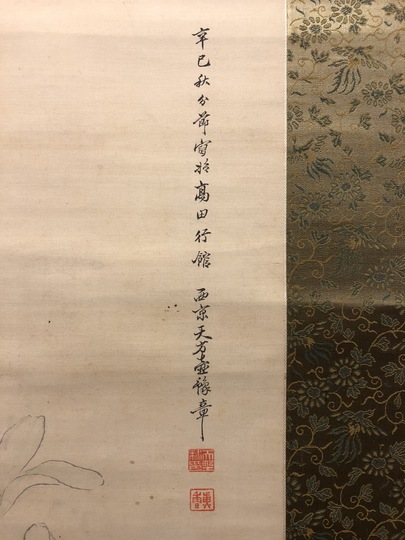 辛巳秋分節寫於高田行館 西京天方壺豫章